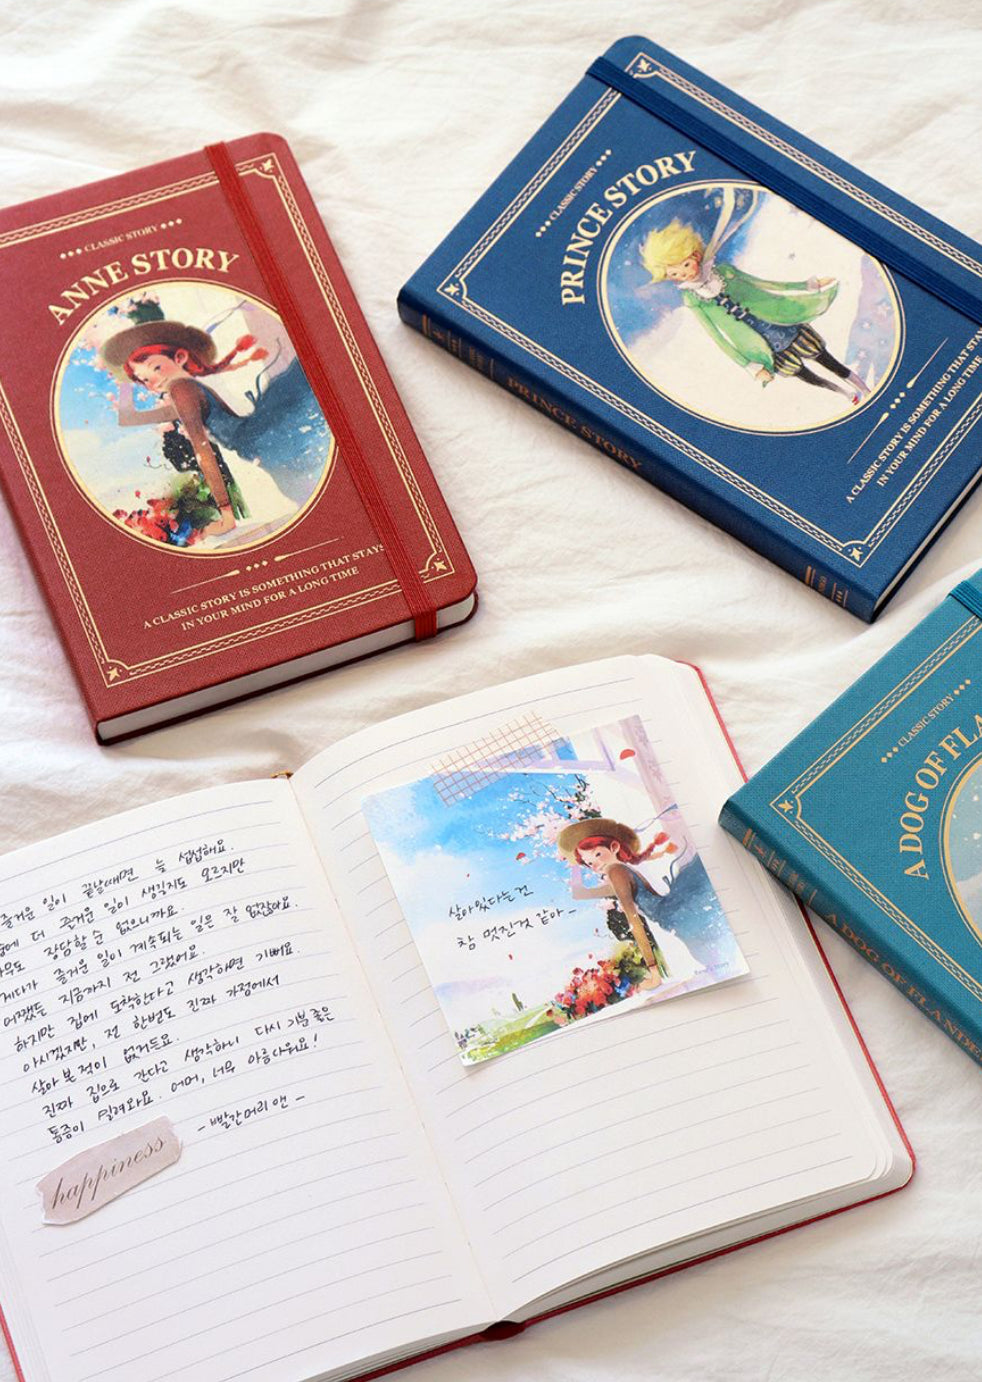 CLASSIC STORY
ANNE STORY
A CLASSIC STORY IS SOMETHING THAT STAYS
IN YOUR MIND FOR A LONG TIME
CLASSIC STORY
PRINCE STORY
A CLASSIC STORY IS SOMETHING THAT STAY
IN YOUR MIND FOR A LONG TIME
PRINCE STORY
CLASSIC STORY
A DOG OF FLA
A DOG OF FLANDE
즐거운 일이 끝날때면 늘 섭섭해요.
에 더 즐거운 일이 생길지도 오르지만
무도 장담할 순 없으니까요.
게다가 즐거운 일이 계속되는 일은 잘 없잖아요.
어쨌든 지금까지 전 그랬어요.
하지만 집에 도착한다고 생각하면 기뻐요.
아시겠지만, 전 한번도 진짜 가정에서
살아 본 적이 없거든요.
진짜 집으로 간다고 생각하니 다시 기분 좋은
통증이 밀려와요. 어머, 너무 아름다워요!
- 빨간머리 앤 -
happiness
살아있다는건
참 멋진것 같아 -